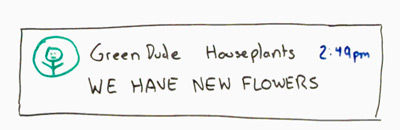 Green Dude Houseplants 2:49pm
WE HAVE NEW FLOWERS